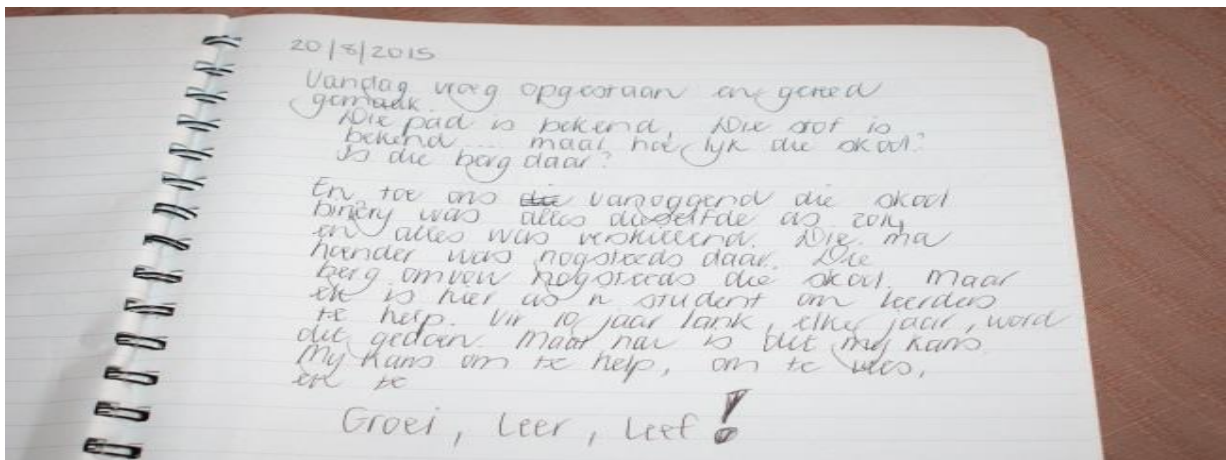 20/8/2015
Vandag vroeg opgestaan en gereed
gemaak.
Die pad is bekend, Die stof is
bekend ... maar hoe lyk die skool?
Is die berg daar?
En toe ons die vanoggend die skool
binery was alles dieselfde as 2014
en alles was verskillend. Die ma
hoender was nogsteeds daar. Die
berg omvou nogsteeds die skool. Maar
ek is hier as n student om leerders
te help. Vir 10 jaar lank, elke jaar, word
dit gedoen. Maar nou is dit my kans.
My kans om te help, om te wees,
en te
Groei, Leer, Leef!